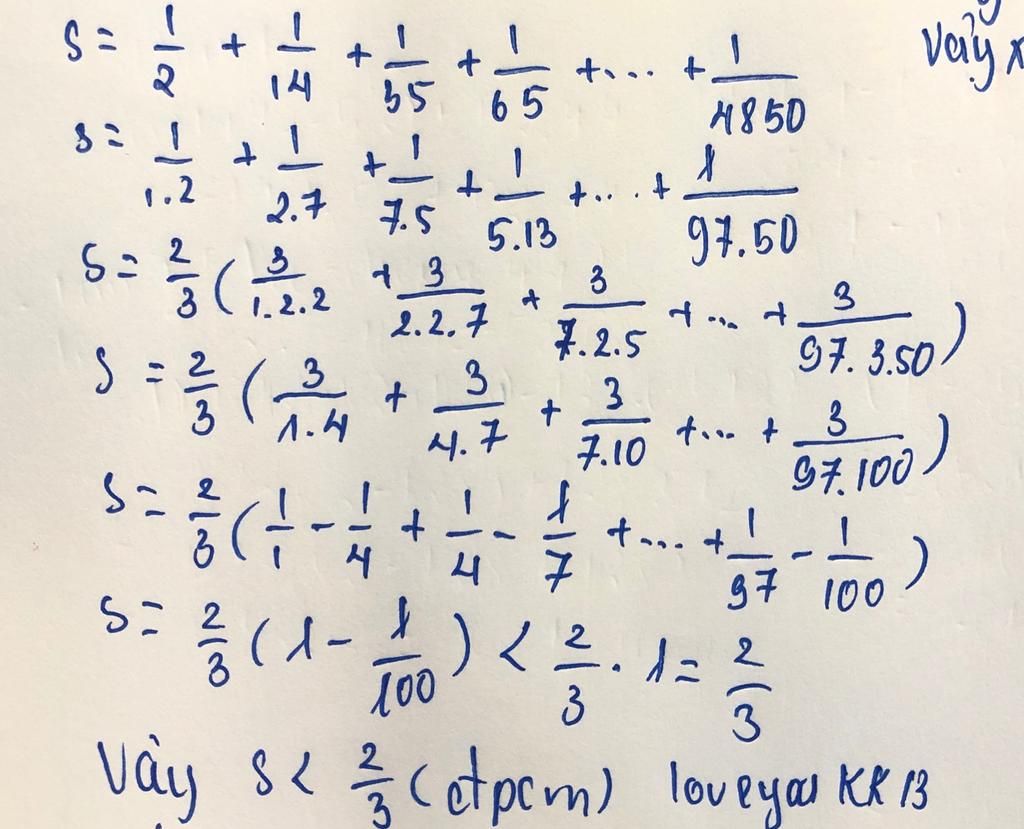 S = 1/2 + 1/14 + 1/35 + 1/65 + ... + 1/4850
Vậy x
S = 1/1.2 + 1/2.7 + 1/7.5 + 1/5.13 + ... + 1/97.50
S = 2/3 ( 3/1.2.2 + 3/2.2.7 + 3/7.2.5 + ... + 3/97.3.50 )
S = 2/3 ( 3/1.4 + 3/4.7 + 3/7.10 + ... + 3/97.100 )
S = 2/3 ( 1/1 - 1/4 + 1/4 - 1/7 + ... + 1/97 - 1/100 )
S = 2/3 ( 1 - 1/100 ) < 2/3 . 1 = 2/3
Vậy S < 2/3 (đtpcm) KR 13